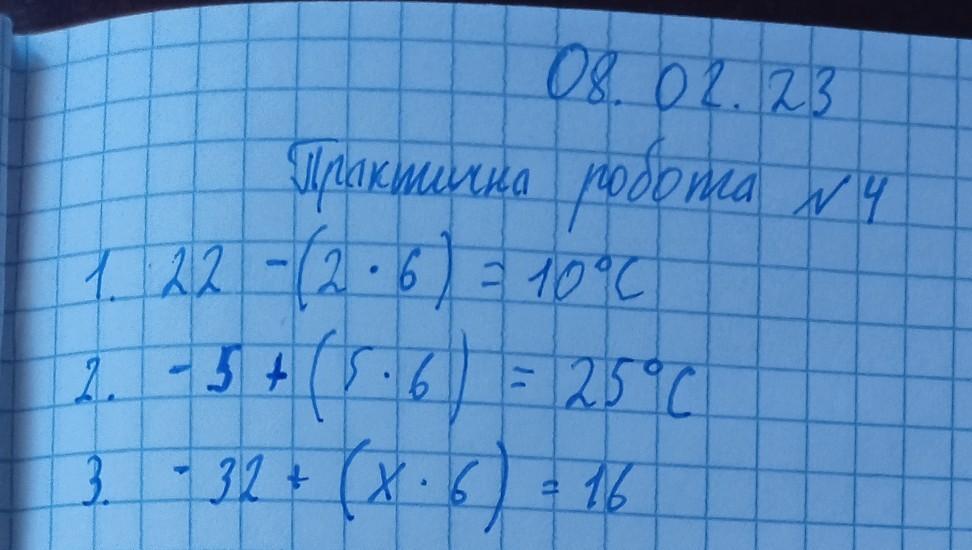 08.02.23
Практична робота №4
1. 22 - (2 · 6) = 10°C
2. - 5 + (5 · 6) = 25°C
3. - 32 + (x · 6) = 16